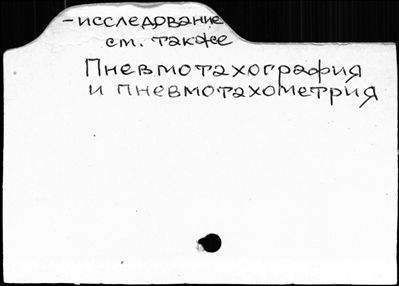 -исследование
см. также
Пневмотахография
и пневмотахометрия